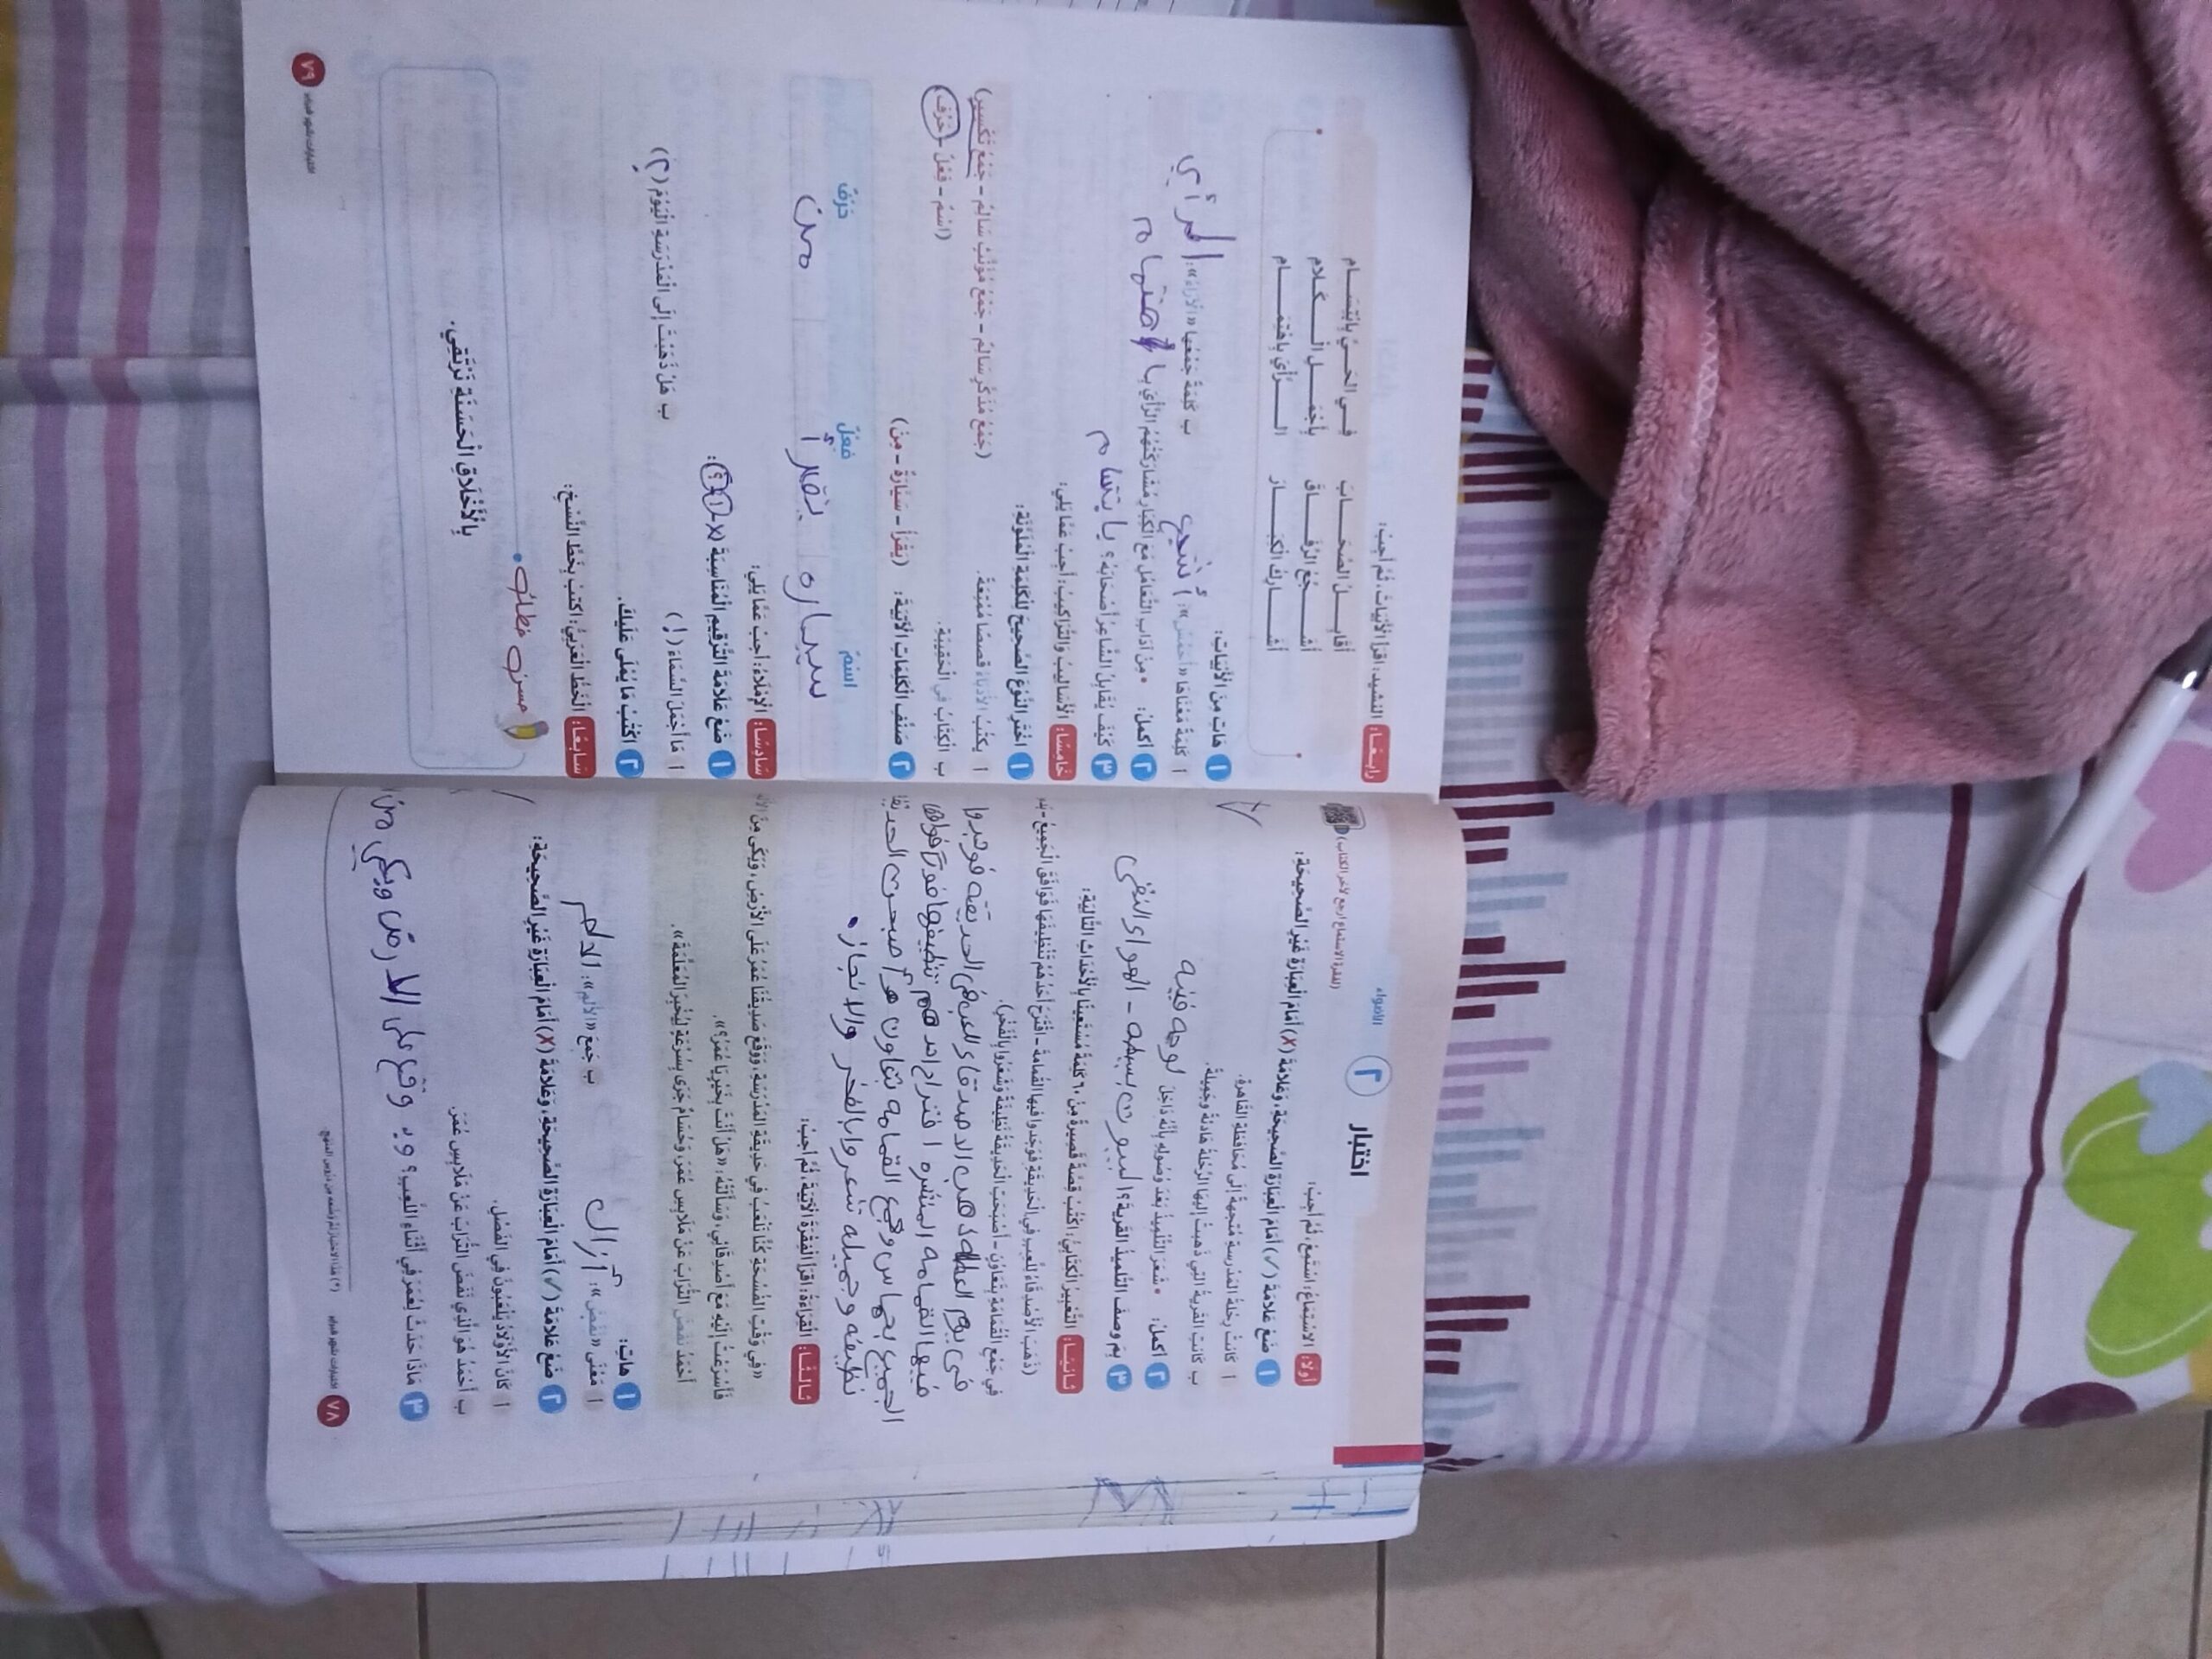 الأضواء
اختبار ٢
أولًا: الاستماع: استمع، ثم أجب:
(لفقرة الاستماع ارجع لآخر الكتاب)
١ ضع علامة (✓) أمام العبارة الصحيحة، وعلامة (X) أمام العبارة غير الصحيحة:
أ كانت رحلة المدرسة متجهة إلى محافظة القاهرة.
ب كانت القرية التي ذهبت إليها الرحلة هادئة وجميلة.
٢ أكمل: • شعر التلميذ بعد وصوله بأنه داخل لوحه فنيه
٣ بم وصف التلميذ القرية؟ البيوت بسيطه - الهواء النقى
ثانيًا: التعبير الكتابي: اكتب قصة قصيرة من ٦٠ كلمة مستعينًا بالأحداث التالية:
(ذهب الأصدقاء للعب في الحديقة فوجدوا فيها القمامة - اقترح أحدهم تنظيفها فوافق الجميع -
في جمع القمامة بتعاون - أصبحت الحديقة نظيفة وشعروا بالفخر).
فى يوم العطله ذهب الاصدقاء للعب فى الحديقه فوجدوا
فيها القمامه المنتشره اقترح احدهم تنظيفها فورًا
الجميع بحماس وجمع القمامه بتعاون أصبحت
نظيفه وجميله شعروا بالفخر والانجاز.
ثالثًا: القراءة: اقرأ الفقرة الآتية، ثم أجب:
«في وقت الفسحة كنا نلعب في حديقة المدرسة، ووقع صديقنا عمر على الأرض، وبكى من
فأسرعت إليه مع أصدقائي، وسألته: «هل أنت بخير يا عمر؟».
أحمد نفض التراب عن ملابس عمر، وحسام جرى بسرعة ليخبر المعلمة».
١ هات:
أ معنى «نفض»: أزال ب جمع «الألم»: الالم
٢ ضع علامة (✓) أمام العبارة الصحيحة، وعلامة (X) أمام العبارة غير الصحيحة:
أ كان الأولاد يلعبون في الفصل.
ب أحمد هو الذي نفض التراب عن ملابس عمر.
٣ ماذا حدث لعمر في أثناء اللعب؟ وقع على الارض وبكى من
٧٨ اختبارات شهر فبراير
رابعًا: النشيد: اقرأ الأبيات، ثم أجب:
أقابـل الصحـاب في الحـي بابتسـام
أشـجع الرفـاق بأجمـل الـكلام
أشـارك الكبـار الـرأي باهتمـام
١ هات من الأبيات:
أ كلمة معناها «أحمس»: أشجع ب كلمة جمعها «الآراء»: الرأي
٢ أكمل: • من آداب التعامل مع الكبار مشاركتهم الرأي باهتمام
٣ كيف يقابل الشاعر أصحابه؟ بابتسام
خامسًا: الأساليب والتراكيب: أجب عما يلي:
١ اختر النوع الصحيح للكلمة الملونة:
أ يكتب الأدباء قصصا ممتعة. (جمع مذكر سالم - جمع مؤنث سالم - جمع تكسير)
ب الكتاب في الحقيبة. (اسم - فعل - حرف)
٢ صنف الكلمات الآتية: (يقرأ - سيارة - من)
اسم فعل حرف
سياره يقرأ من
سادسًا: الإملاء: أجب عما يلي:
١ ضع علامة الترقيم المناسبة (X - ! - ؟):
أ ما أجمل السماء (!) ب هل ذهبت إلى المدرسة اليوم (؟)
٢ اكتب ما يملى عليك.
سابعًا: الخط العربي: اكتب بخط النسخ:
حسن خطك
بالأخلاق الحسنة نرتقي.
اختبارات شهر فبراير ٧٩